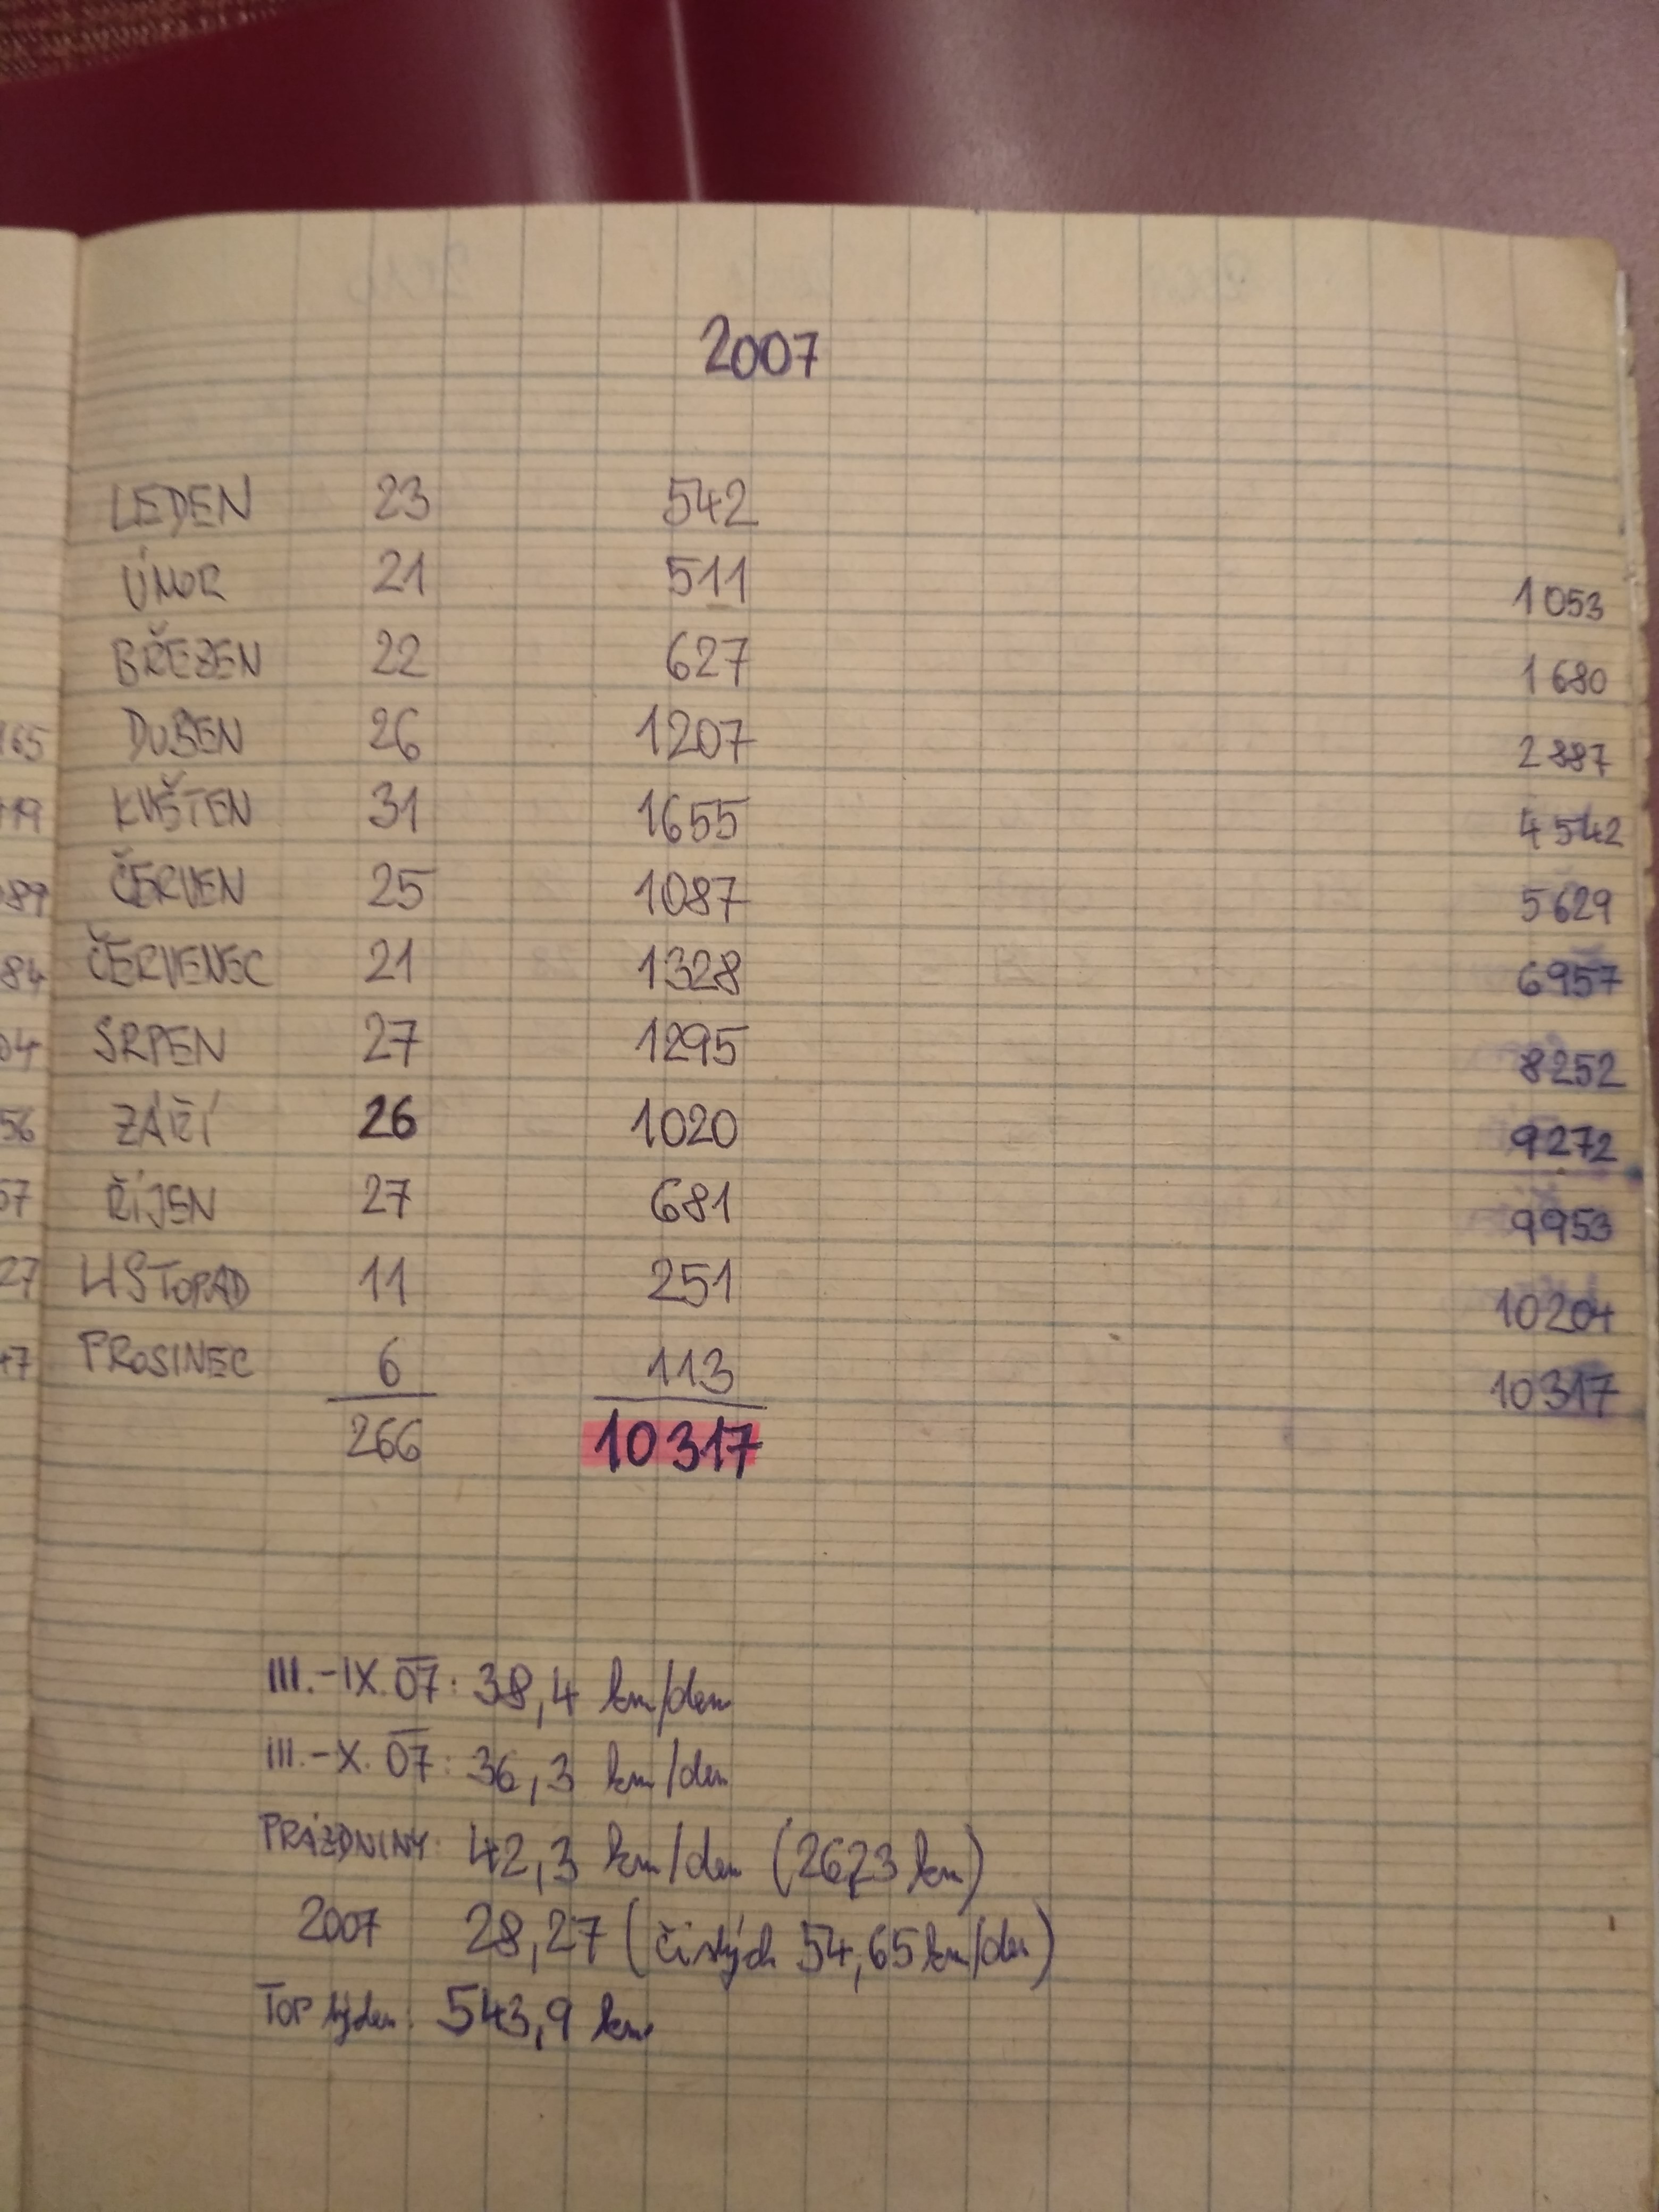 2007
LEDEN 23 542
ÚNOR 21 511 1053
BŘEZEN 22 627 1680
165 DUBEN 26 1207 2887
KVĚTEN 31 1655 4542
89 ČERVEN 25 1087 5629
84 ČERVENEC 21 1328 6957
04 SRPEN 27 1295 8252
56 ZÁŘÍ 26 1020 9272
57 ŘÍJEN 27 681 9953
27 LISTOPAD 11 251 10204
47 PROSINEC 6 113 10317
266 10317
III.-IX. 07: 38,4 km/den
III.-X. 07: 36,3 km/den
PRÁZDNINY: 42,3 km/den (2623 km)
2007 28,27 (čistých 54,65 km/den)
TOP týden: 543,9 km